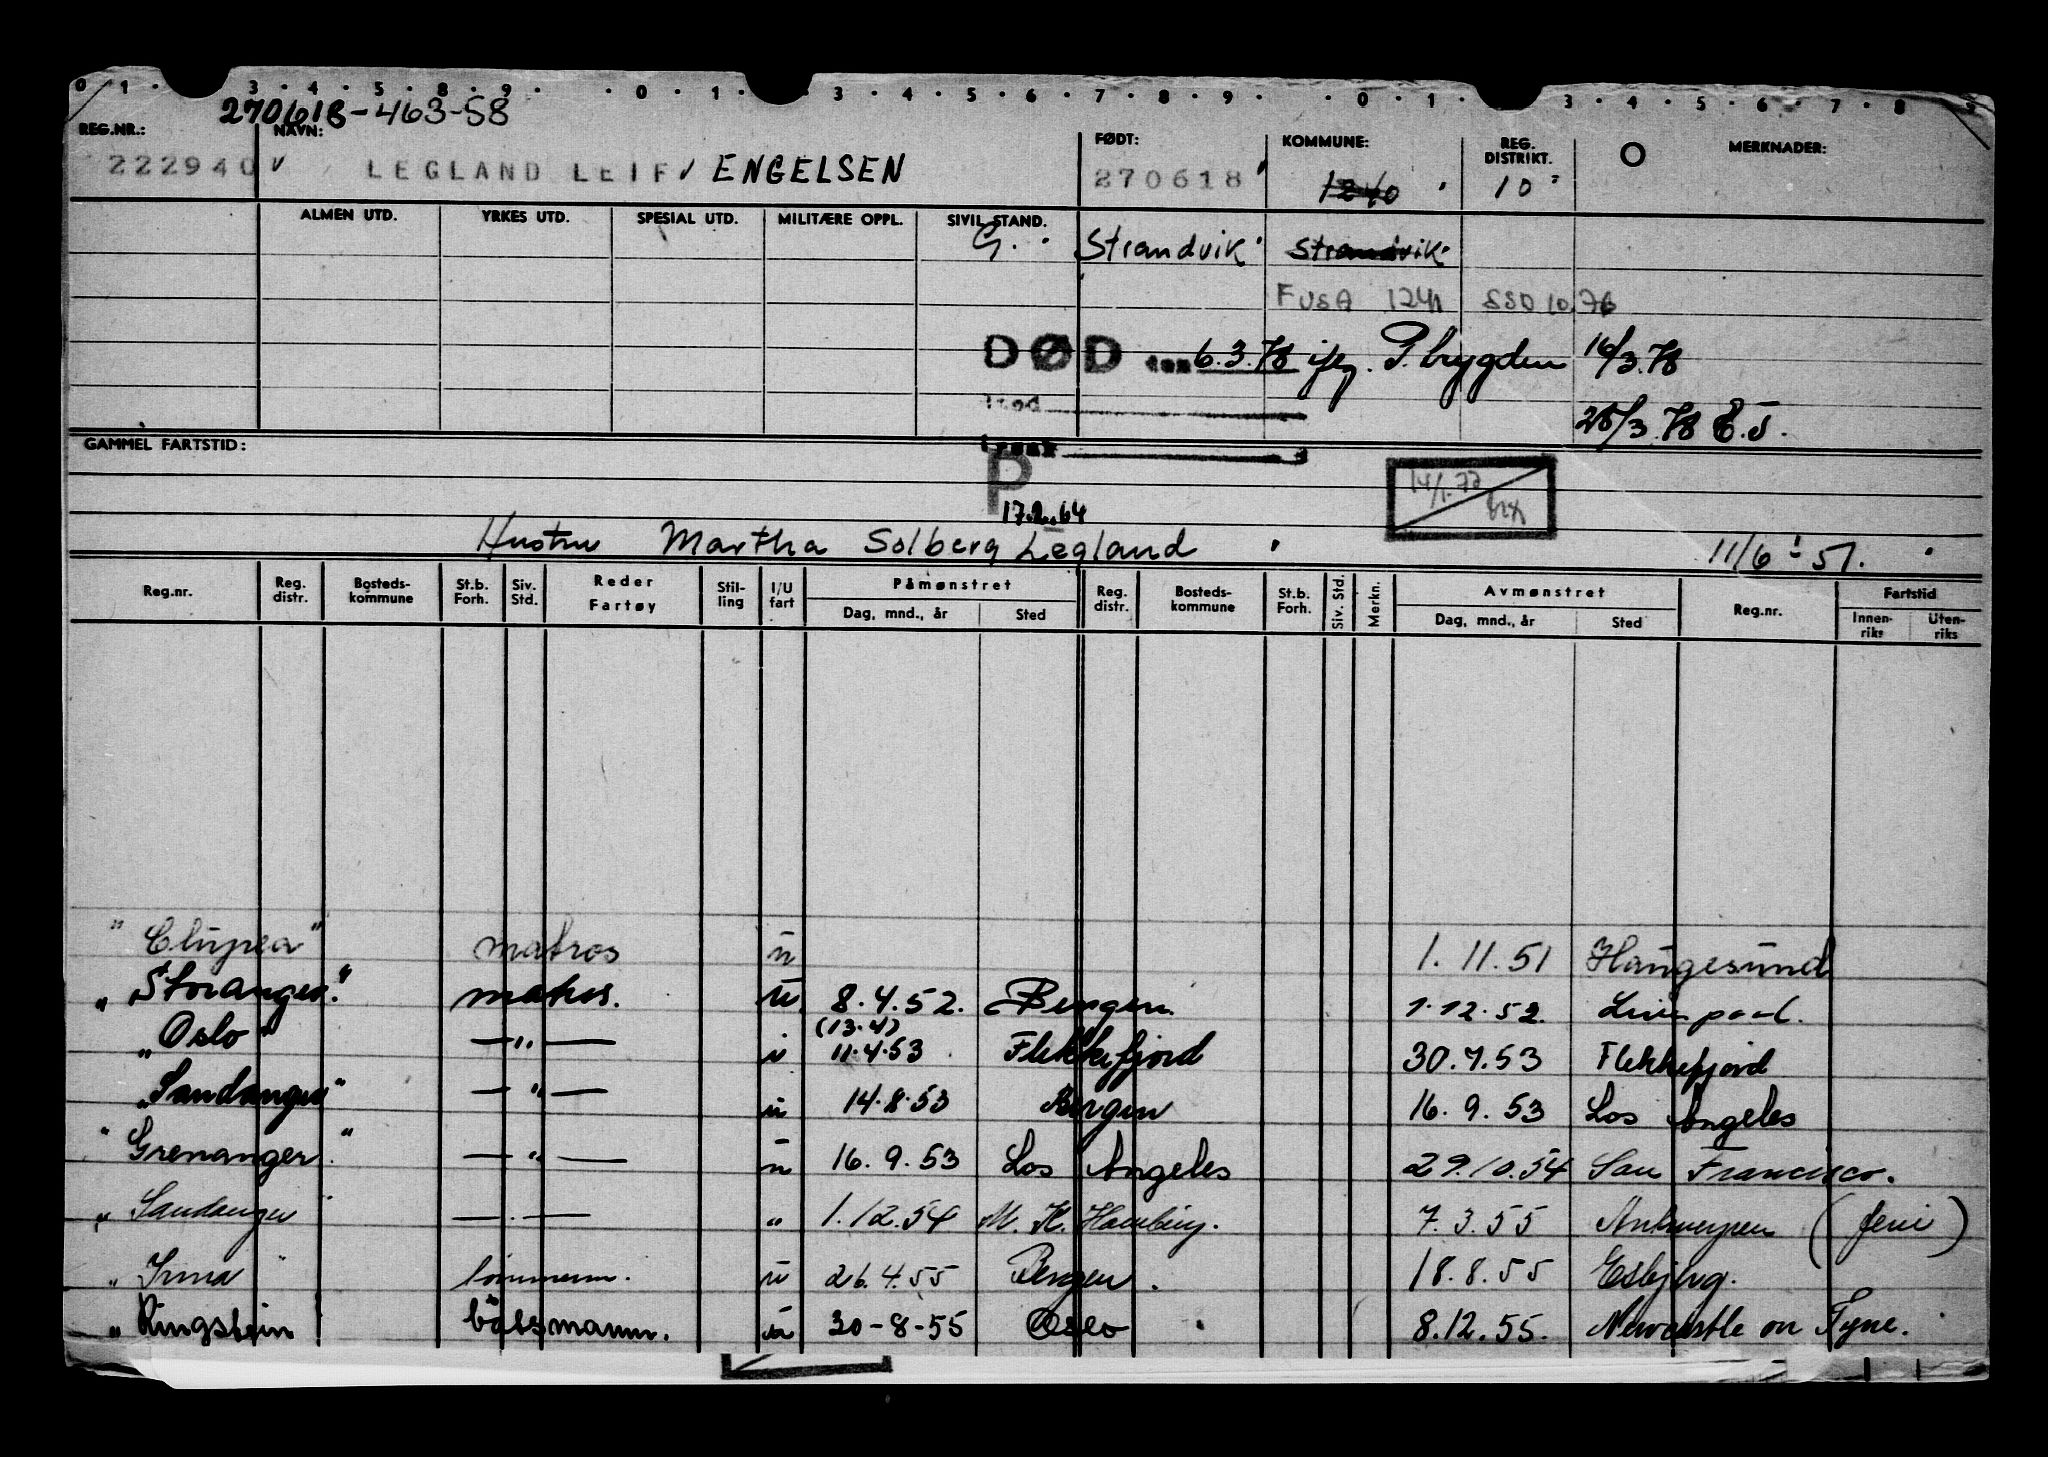 0 1 · 3 · 4 · 5 · 8 · 9 · · 0 · 1 · 3 · 4 · 5 · 6 · 7 · 8 · 9 · · 0 · 1 · 3 · 4 · 5 · 6 · 7 · 8 9
270618-463-58
REG.NR.: NAVN: FØDT: KOMMUNE: REG. DISTRIKT. O MERKNADER:
222940 LEGLAND LEIF ENGELSEN 270618 1240 10
ALMEN UTD. YRKES UTD. SPESIAL UTD. MILITÆRE OPPL. SIVIL STAND.
G. Strandvik Strandvik
FUSA 1241 SSD 10.76
DØD den 6.3.78 ifлg. 16/3.78
28/3.78 E.S.
GAMMEL FARTSTID:
P 14/1.77
17.2.64
Hustru Martha Solberg Legland 11/6 - 51.
Reg.nr. Reg. distr. Bosteds-kommune St.b. Forh. Siv. Std. Reder Fartøy Stil-ling I/U fart Påmønstret Dag, mnd., år Sted Reg. distr. Bosteds-kommune St.b. Forh. Siv. Std. Merkn. Avmønstret Dag, mnd., år Sted Reg.nr. Fartstid Innen-riks Uten-riks
"Clupea" matros u 1.11.51 Haugesund
"Storanger." matros. u 8.4.52. Bergen. 1.12.52. Liverpool.
(13.4)
"Oslo" —"— u 11.4.53 Flekkefjord 30.7.53 Flekkefjord
"Sandanger" —"— u 14.8.53 Bergen 16.9.53 Los Angeles
"Grenanger" —"— u 16.9.53 Los Angeles 29.10.54 San Francisco.
"Sandanger" —"— " 1.12.54 M. K. Hamburg. 7.3.55 Antwerpen (ferie)
"Irma" tømmerm. u 26.4.55 Bergen. 18.8.55 Esbjerg.
"Ringstein båtsmann. u 30-8-55 Oslo 8.12.55. Newcastle on Tyne.